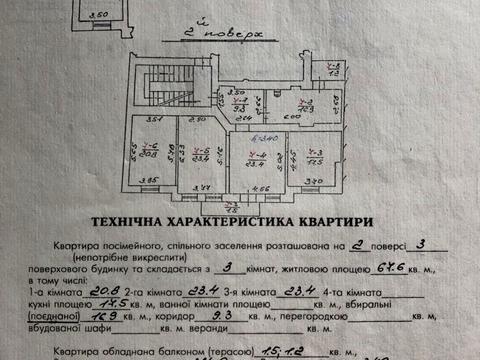 3.50
й
2 поверх
4-8
1.2
3.50
4-1
9.3
1.55
2.66
2.64
4-2
16.9
6.00
2.68
3.51
2.90
h-3.40
4-6
20.8
5.65
5.78
4-5
23.4
5.16
4-4
23.4
5.02
4.45
4-3
17.5
3.85
3.77
4.66
3.70
1.5
ТЕХНІЧНА ХАРАКТЕРИСТИКА КВАРТИРИ
Квартира посімейного, спільного заселення розташована на 2 поверсі 3
(непотрібне викреслити)
поверхового будинку та складається з 3 кімнат, житловою площею 67.6 кв. м,
в тому числі:
1-а кімната 20.8 2-га кімната 23.4 3-я кімната 23.4 4-та кімната
кухні площею 17.5 кв. м, ванної кімнати площею кв. м, вбиральні
(поєднаної) 16.9 кв. м, коридор 9.3 кв. м, перегородкою кв. м,
вбудованої шафи кв. м веранди кв. м.
Квартира обладнана балконом (терасою) 1.5; 1.2 кв. м